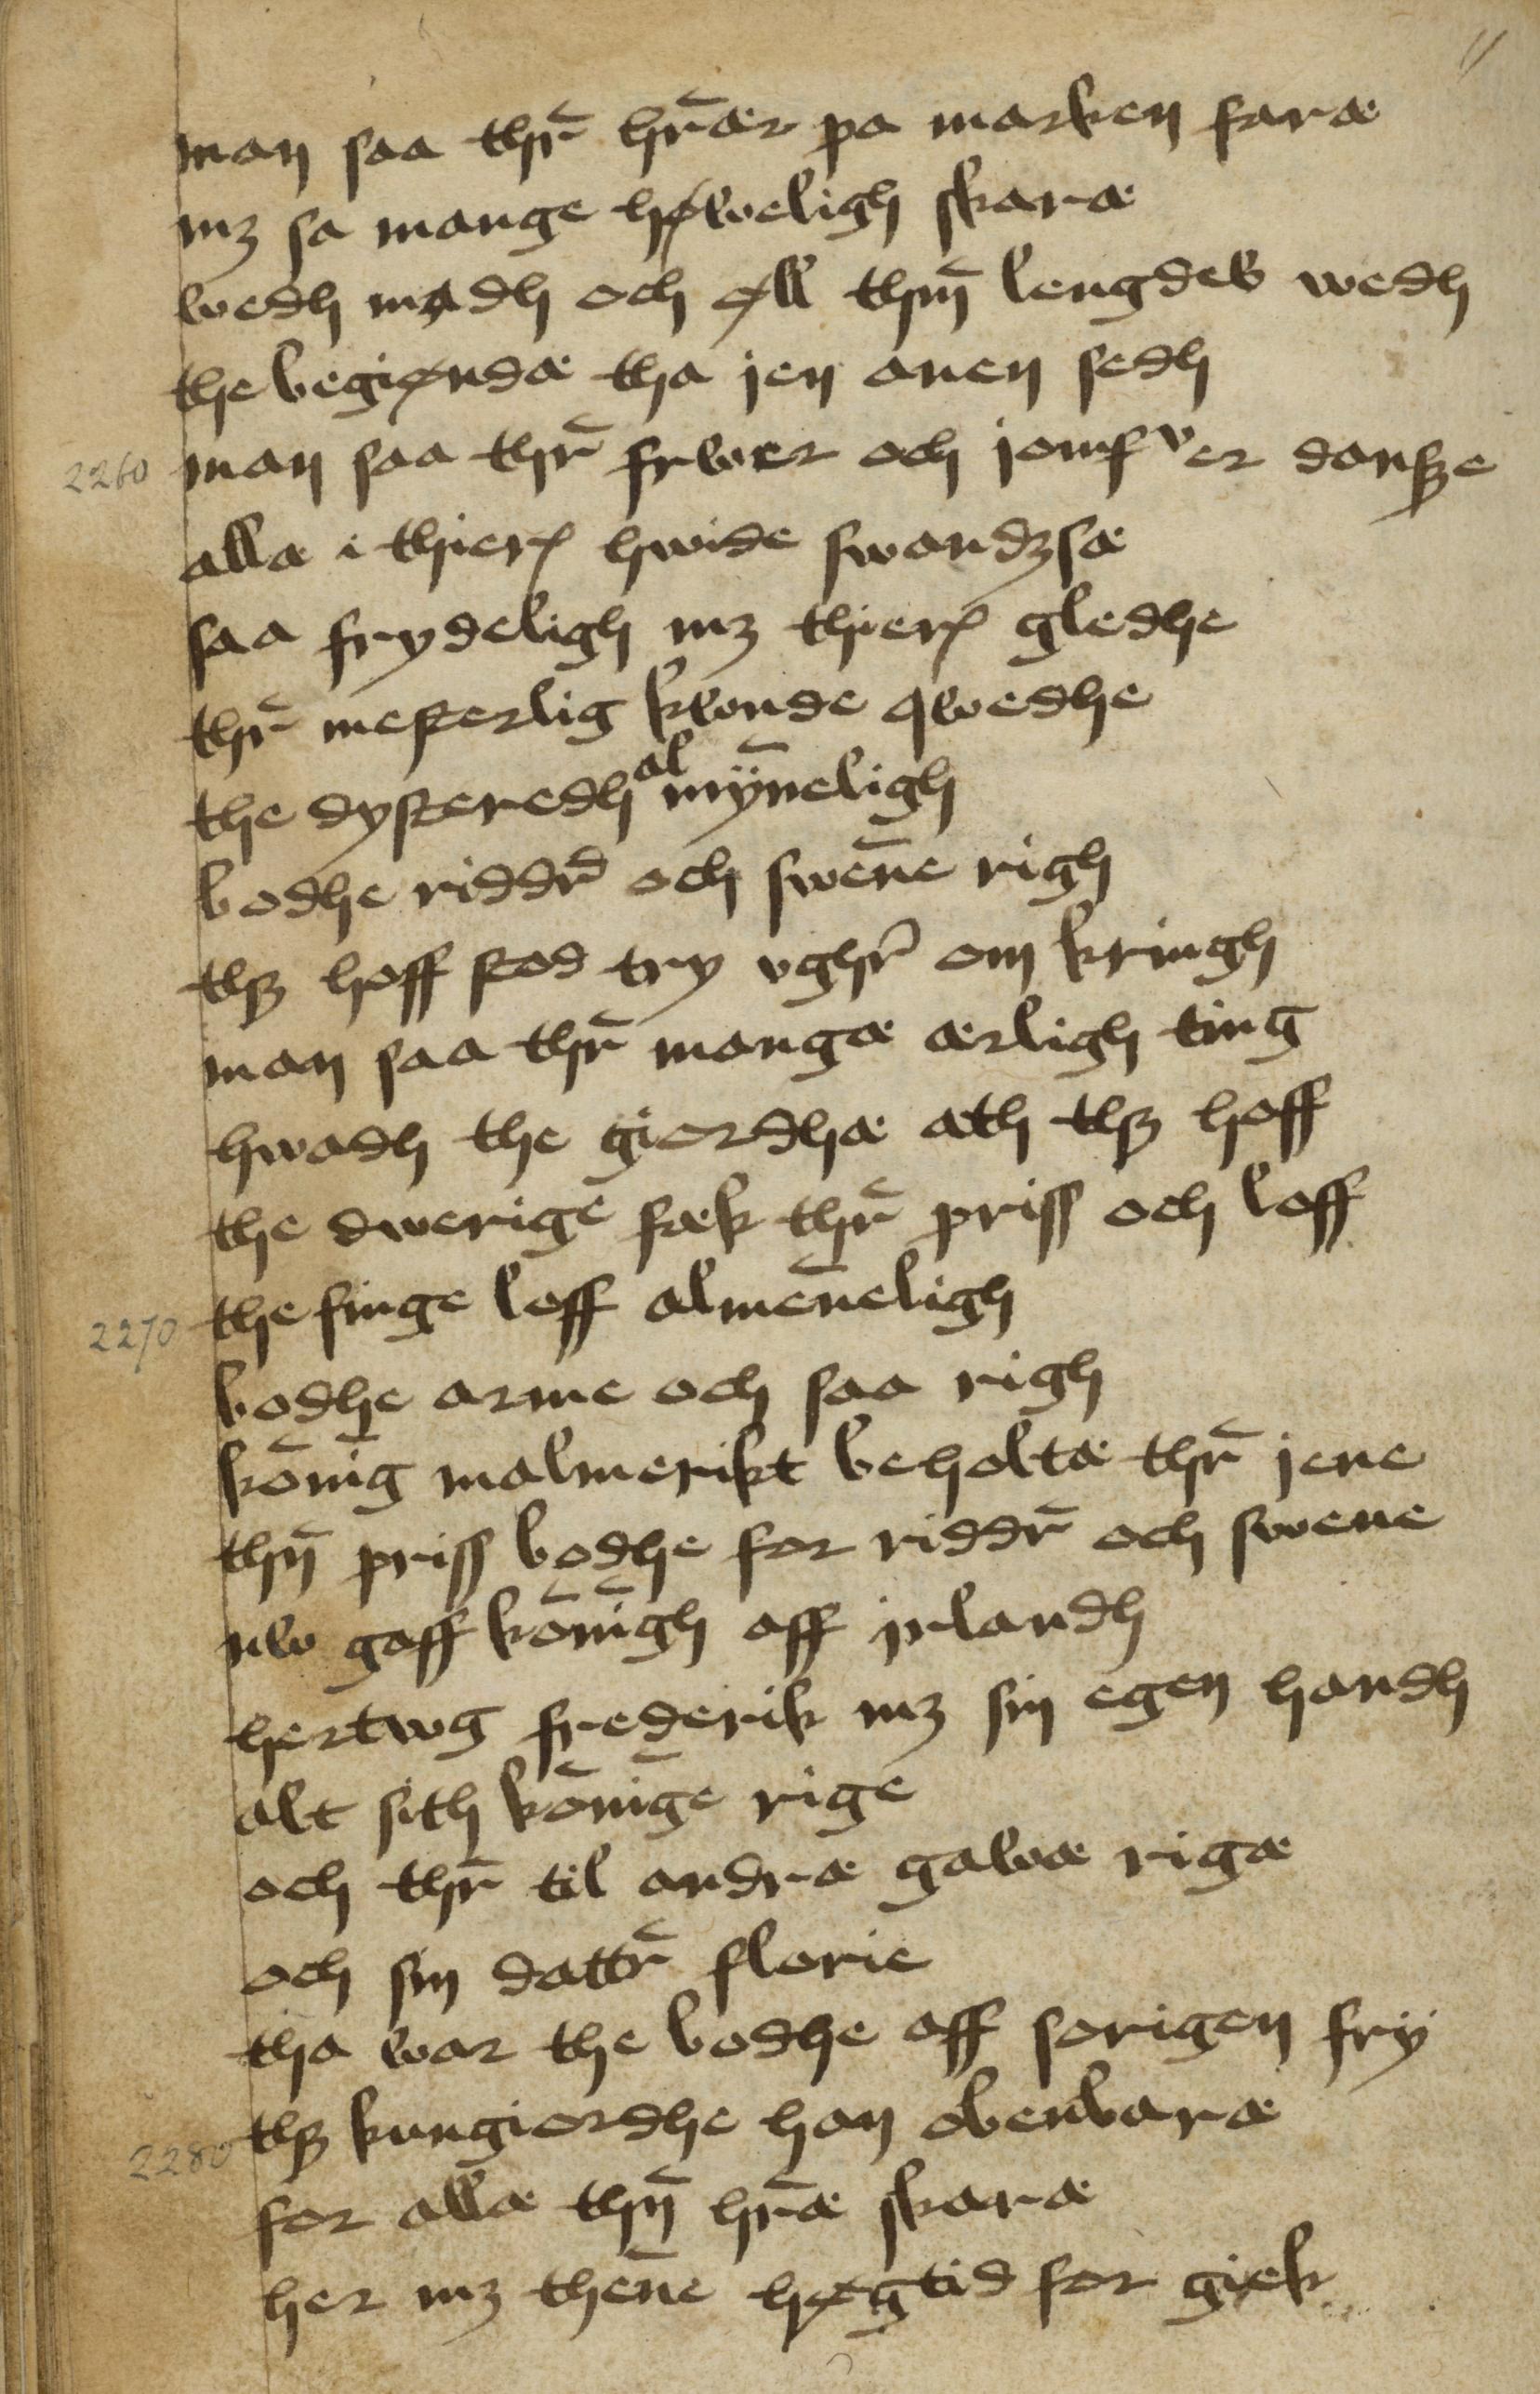 man saa thr̄ hr̄ær pa marken faræ
mꝫ sa mange høweligh skaræ
wedh mødh och øll thm̄ lengdeb wedh
the begiøndæ tha jen anen sedh
2260 man saa thr̄ frwer och jomfver danſze
allæ i thierꝭ hwide swandꝫsæ
saa frydeligh mꝫ thierꝭ gledhe
thr̄ mesterlig kwnde qwedhe
the dysteredh al mÿn̄eligh
bodhe riddr̄ och swen̄e righ
thꝫ hoff stod try vghr̄ om kringh
man saa thr̄ mangæ ærligh ting
hwadh the giordhæ ath thꝫ hoff
the dwerige fæk thr̄ priss och loff
2270 the finge loff almen̄eligh
bodhe arme och saa righ
kōnīg malmerikt beholtæ thr̄ jene
thn̄ priss bodhe for riddr̄ och swene
nw gaff kōnīgh aff jrlandh
hertwg frederik mꝫ sin egen handh
alt sith kōnīge rige
och thr̄ til andræ gawæ rigæ
och sin dattr̄ florie
tha war the bodhe aff sorigen frÿ
2280 thꝫ kungiordhe han obenbaræ
for allæ thn̄ hr̄æ skaræ
her mꝫ then̄e høgtid for giek